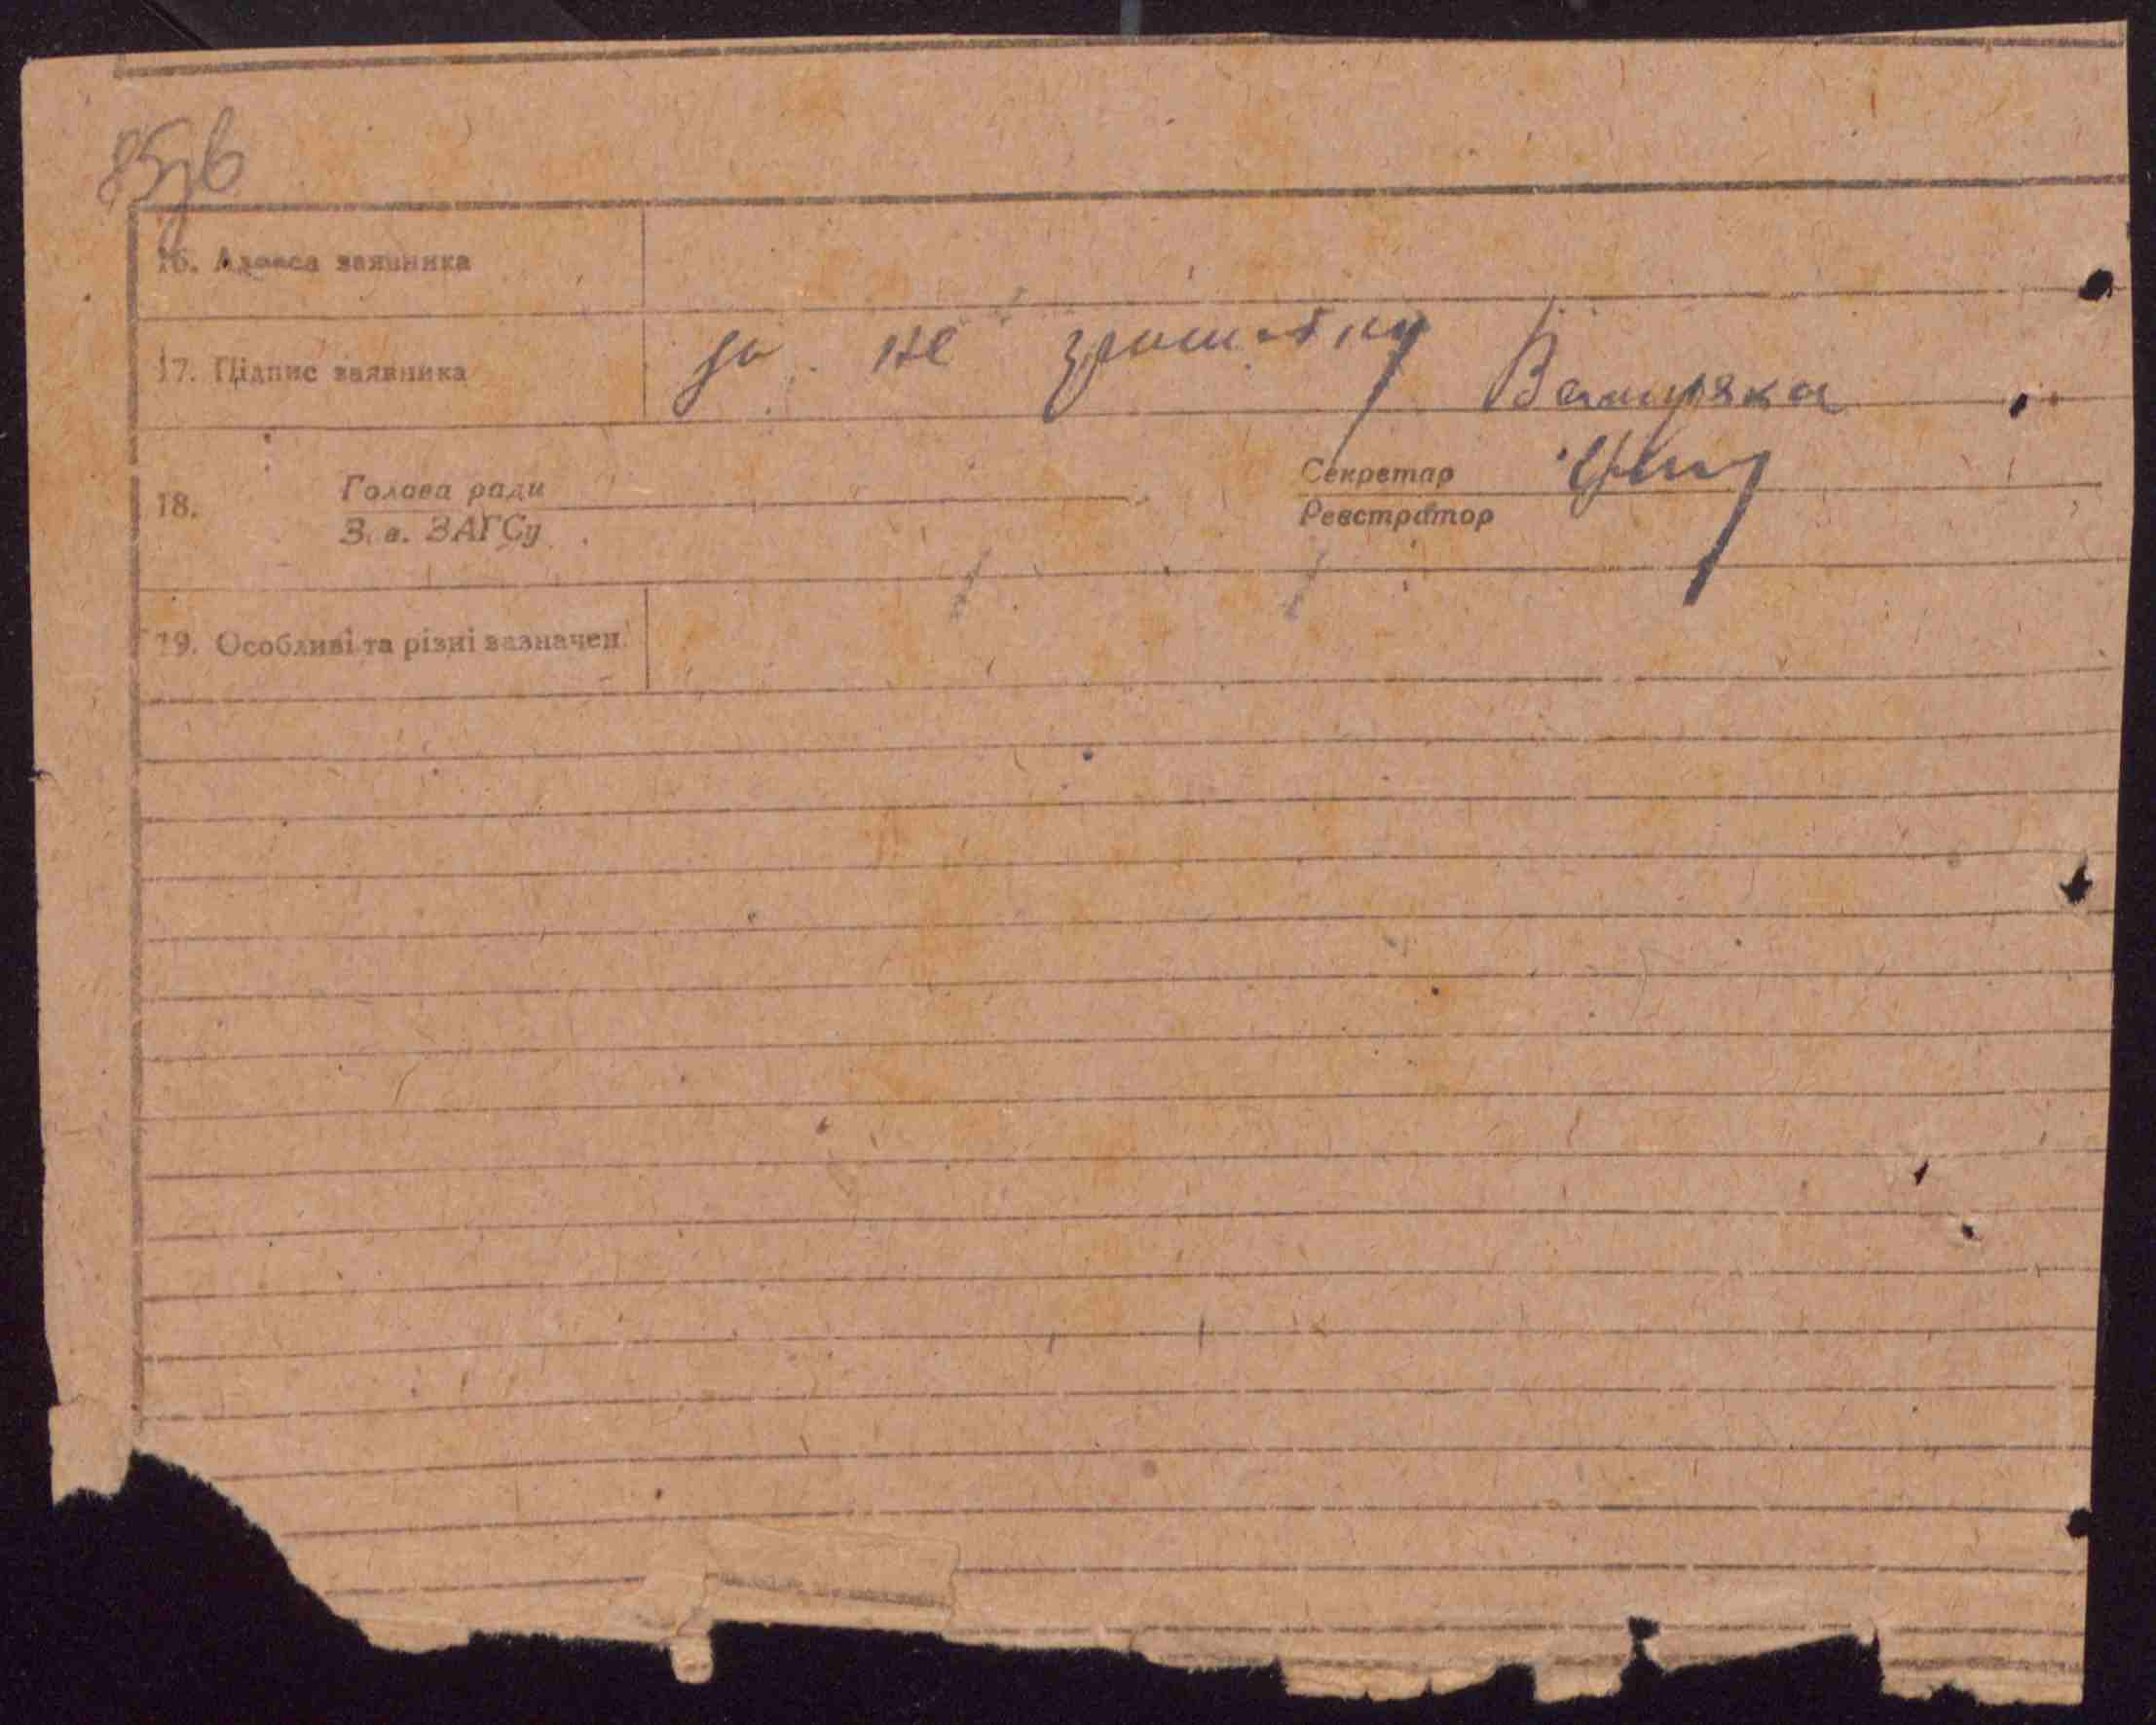 16. Адреса заявника
17. Підпис заявника за не грамотну
18. Голова ради Секретар
З. в. ЗАГСу Реєстратор
19. Особливі та різні зазначен.